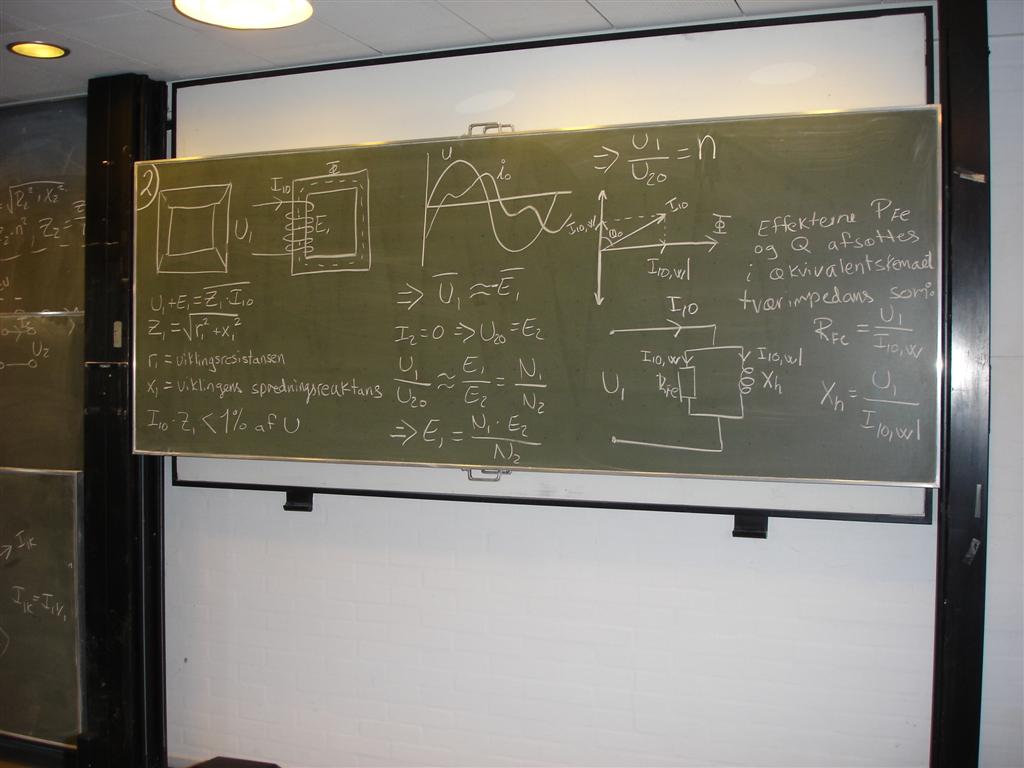 2)
I10
Φ
U1
E1
U1+E1=Z1·I10
Z1=√r1²+x1²
r1=viklingsresistansen
x1=viklingens spredningsreaktans
I10·Z1<1% af U
u
i0
⇒ U1≈-E1
I2=0 ⇒U20=E2
U1/U20≈E1/E2=N1/N2
⇒E1=N1·E2/N2
⇒U1/U20=n
I10
I10,w
φ0
Φ
I10,wl
I10
I10,w
I10,wl
U1
RFe
Xh
Effekterne PFe
og Q afsættes
i ækvivalentskemaet
tværimpedans som:
RFe=U1/I10,w
Xh=U1/I10,wl
U2
I1K
I1K=I1V1